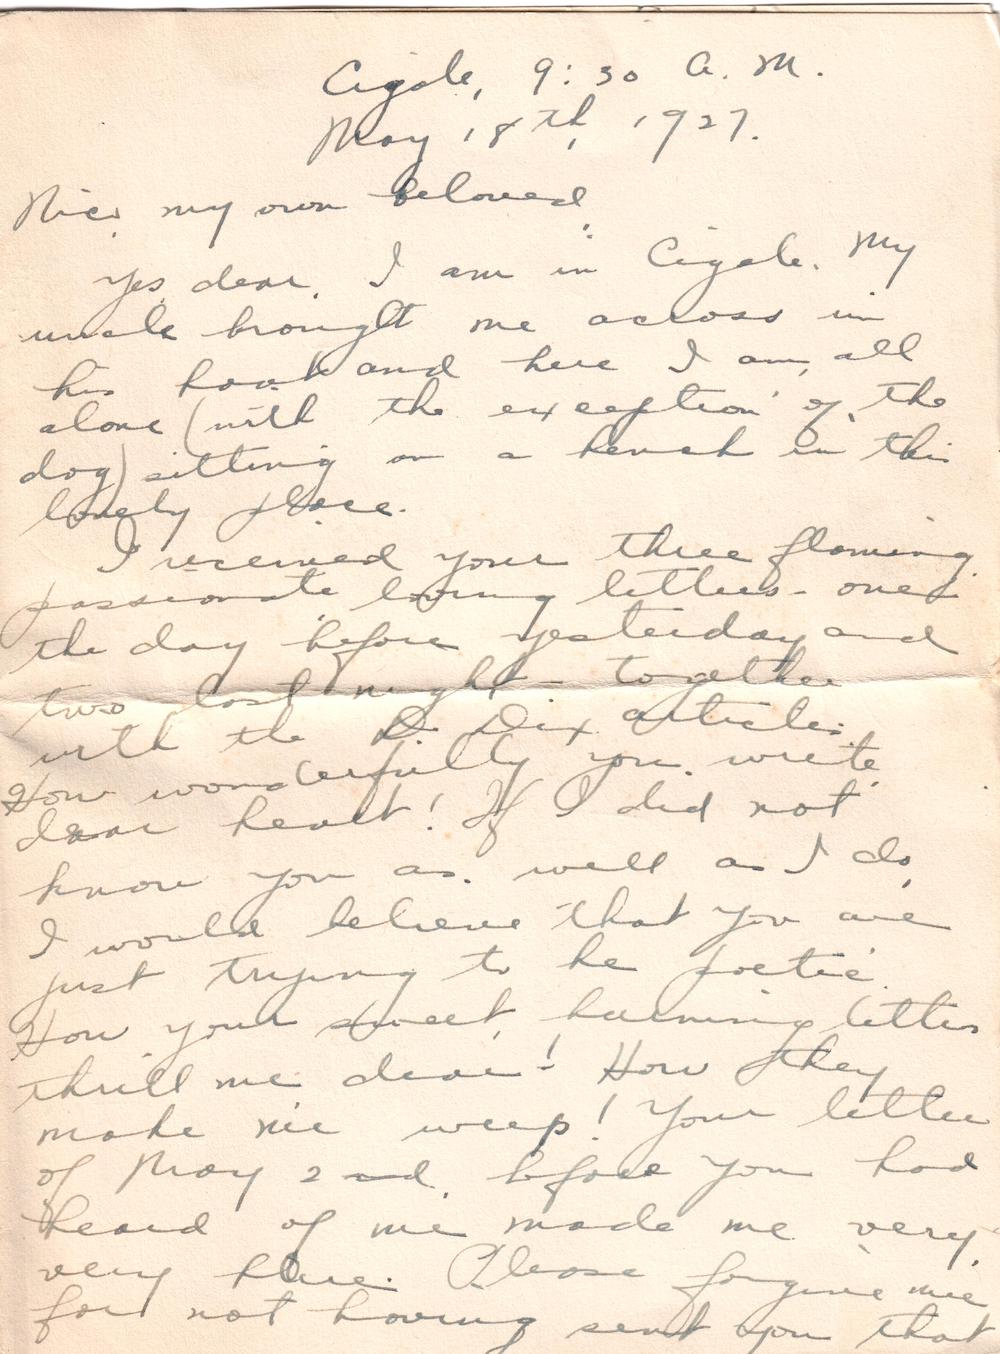 Cigale, 9:30 A.M.
May 18th, 1927.
Nico, my own beloved,
Yes, dear, I am in Cigale. My
uncle brought me across in
his boat and here I am, all
alone (with the exception of the
dog) sitting on a bench in this
lonely place.
I received your three flaming,
passionate loving letters - one
the day before yesterday and
two last night - together
with the D. Dix articles.
How wonderfully you write,
dear heart! If I did not
know you as well as I do,
I would believe that you are
just trying to be poetic.
How your sweet, burning letters
thrill me dear! How they
make me weep! Your letter
of May 2nd, before you had
heard of me made me very,
very blue. Please forgive me
for not having sent you that